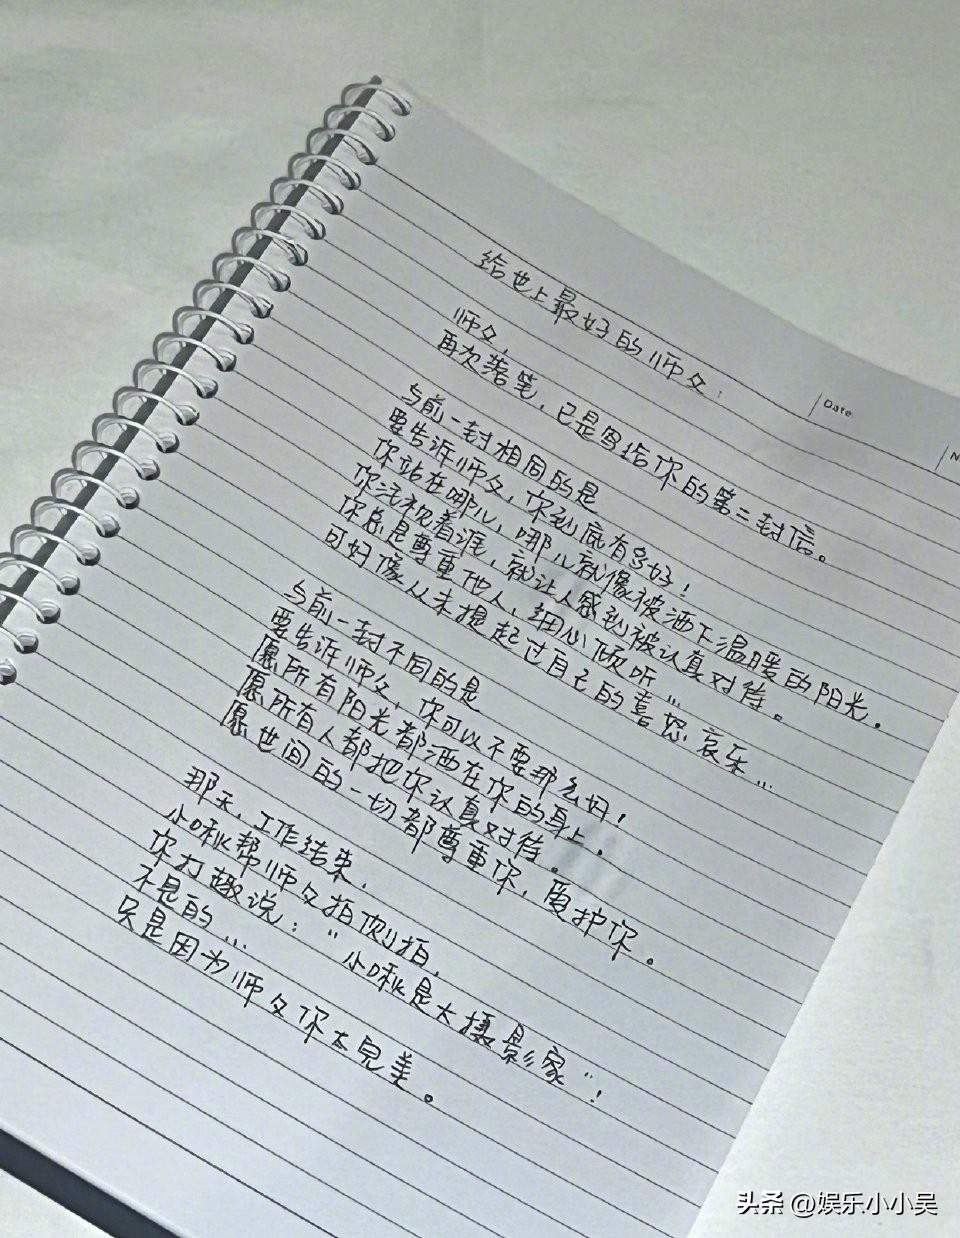 给世上最好的师父：
Date
师父，
再次落笔，已是写给你的第二封信。
与前一封相同的是
要告诉师父，你到底有多好！
你站在哪儿，哪儿就像被洒下温暖的阳光，
你注视着谁，就让人感到被认真对待。
你总是尊重他人，细心倾听…
可好像从未提起过自己的喜怒哀乐…
与前一封不同的是
要告诉师父，你可以不要那么好，
愿所有阳光都洒在你的身上，
愿所有人都把你认真对待。
愿世间的一切都尊重你，爱护你。
那天，工作结束，
小啾帮师父拍侧拍，
你打趣说："小啾是大摄影家"！
不是的…
只是因为师父你太完美。
头条 @娱乐小小吴